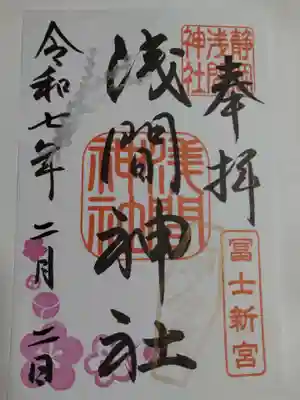 奉拝
静岡浅間神社
富士新宮
浅間神社
淺間神社
令和七年二月二日